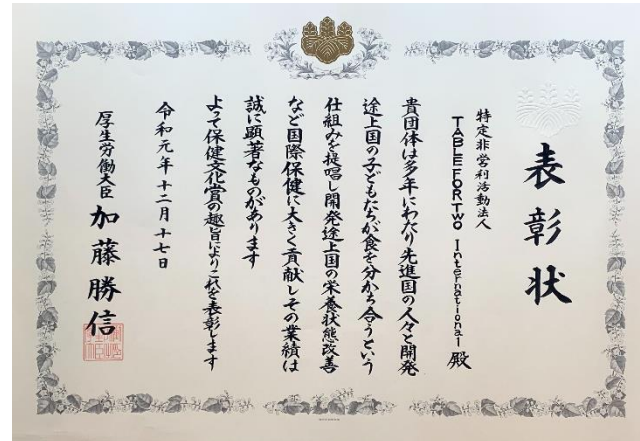 表彰状
特定非営利活動法人
TABLE FOR TWO International 殿
貴団体は多年にわたり先進国の人々と開発
途上国の子どもたちが食を分かち合うという
仕組みを提唱し開発途上国の栄養状態改善
など国際保健に大きく貢献しその業績は
誠に顕著なものがあります
よって保健文化賞の趣旨によりこれを表彰します
令和元年十二月十七日
厚生労働大臣 加藤勝信